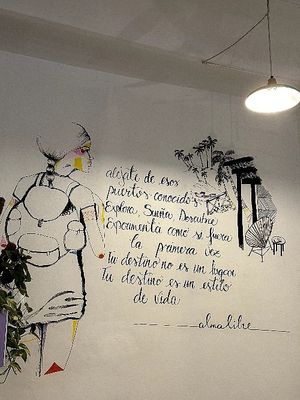 aléjate de esos
puertos conocidos.
Explora. Sueña. Descubre
Experimenta como si fuera
la primera vez
Tu destino no es un lugar
Tu destino es un estilo
de vida
almalibre